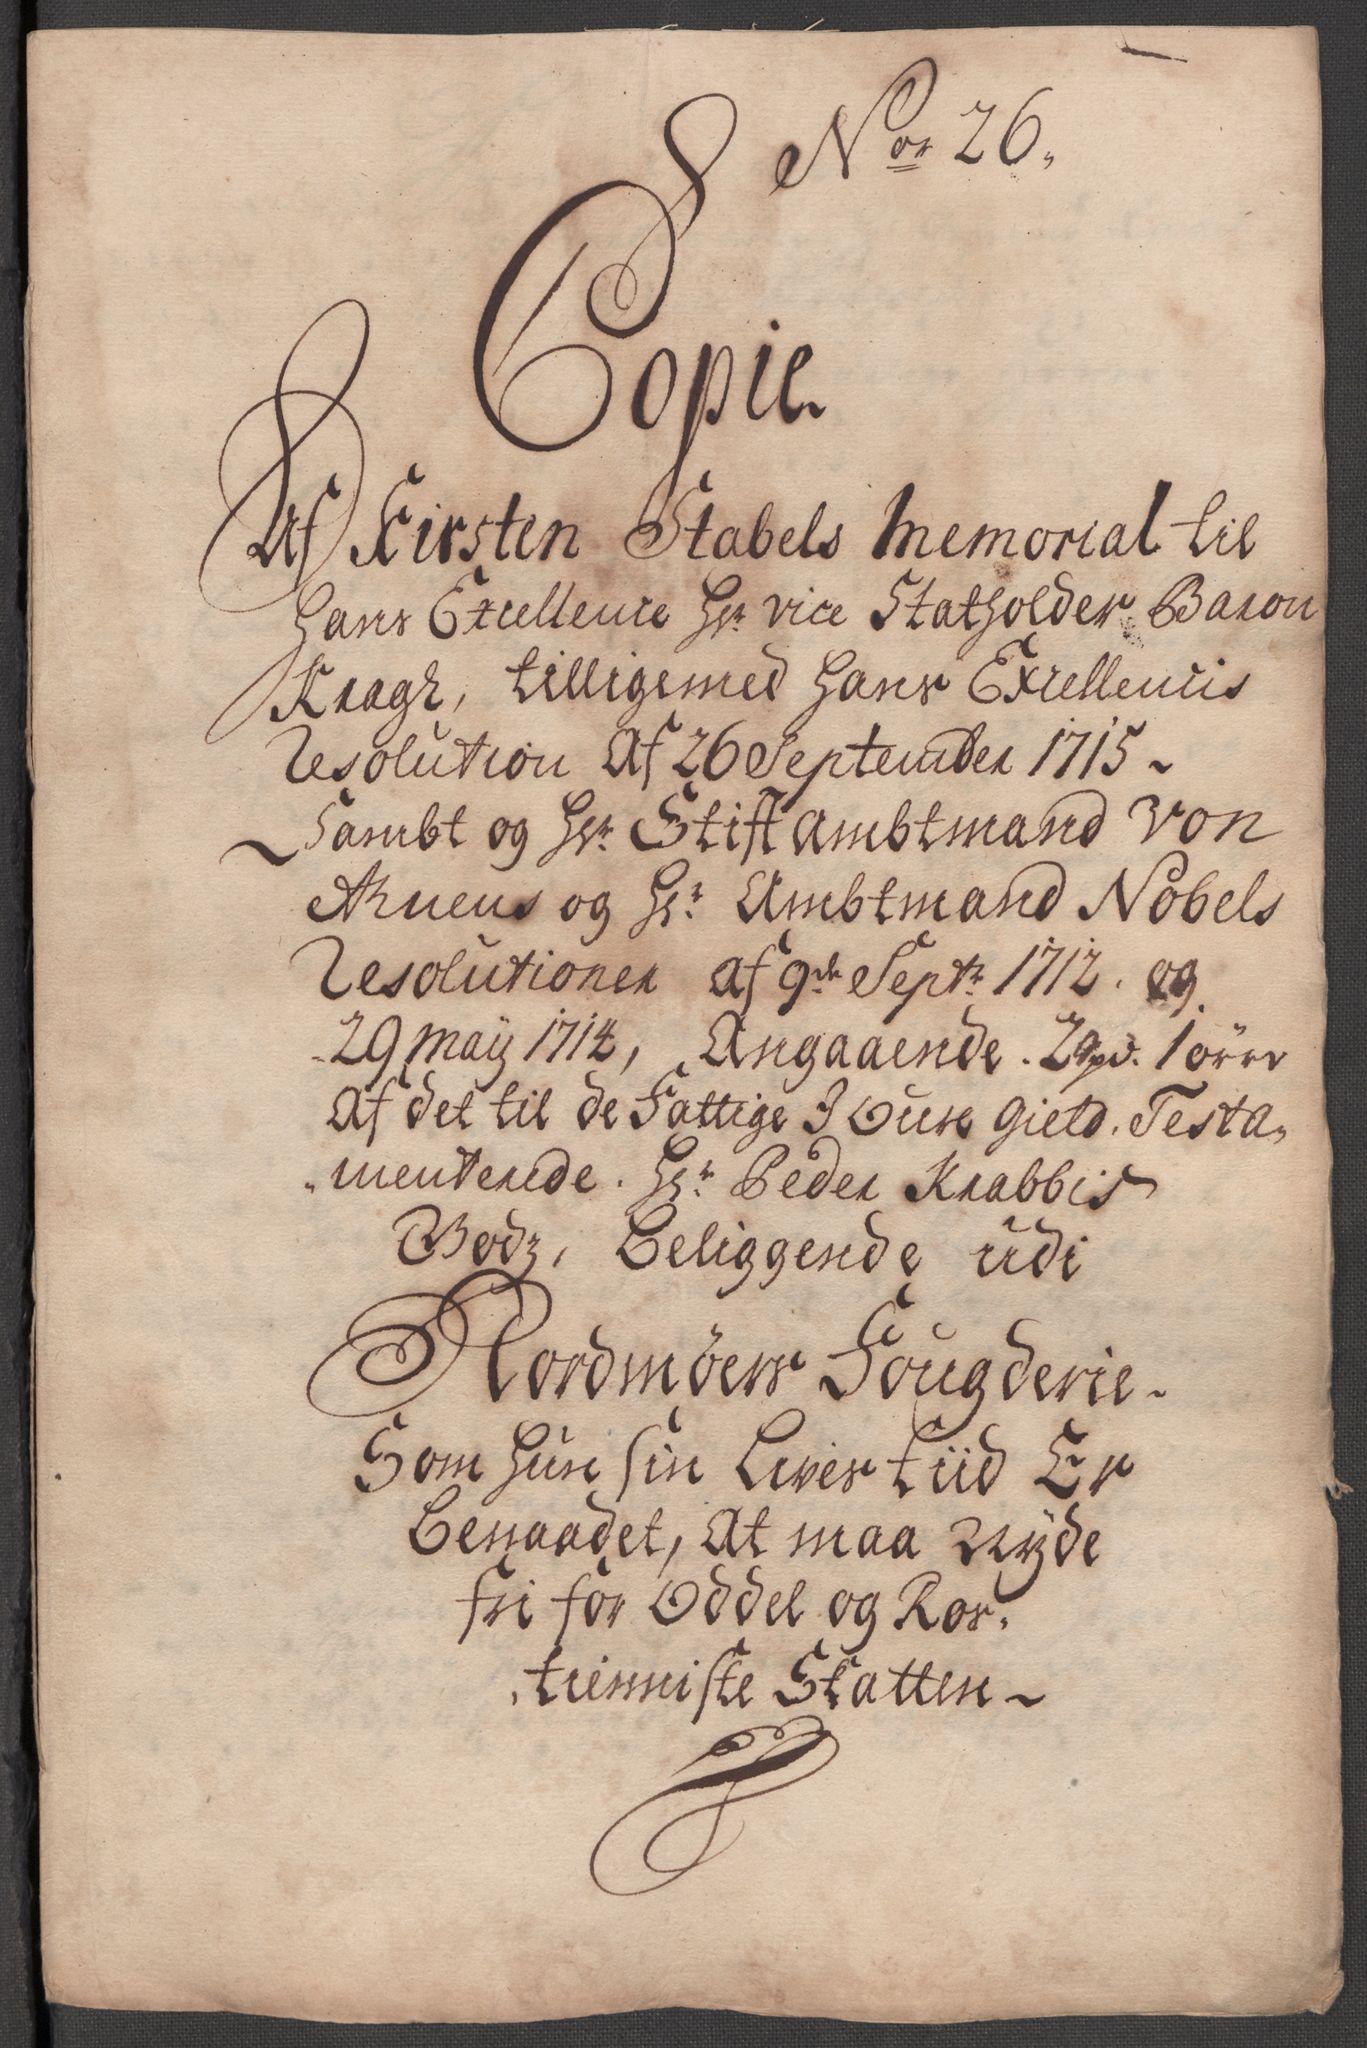 Nor 26.
Copie
Af Kirsten Stabels Memorial til
Hans Excellence Hr: vice Statholder Baron
Kragh, tilligemed Hans Excellencis
Resolution Af 26 September 1715 ~
Sambt og Hr: Stiftambtmand Von
Ahnens og Hr: Ambtmand Nobels
Resolutioner af 9de Septr: 1712. og
29 Maÿ 1714, Angaaende. 2 1 örer
Af det til de Fattige I Oure Gield. Testa-
-menterede. Hr: Peder Krabbis
Godz, beliggende udi
Nordmöers Fougderie.
Som Hun sin Lives tiid Er
benaadet, At maa Nyde
fri for Oddel og Ros-
-tienniste Skatten ~